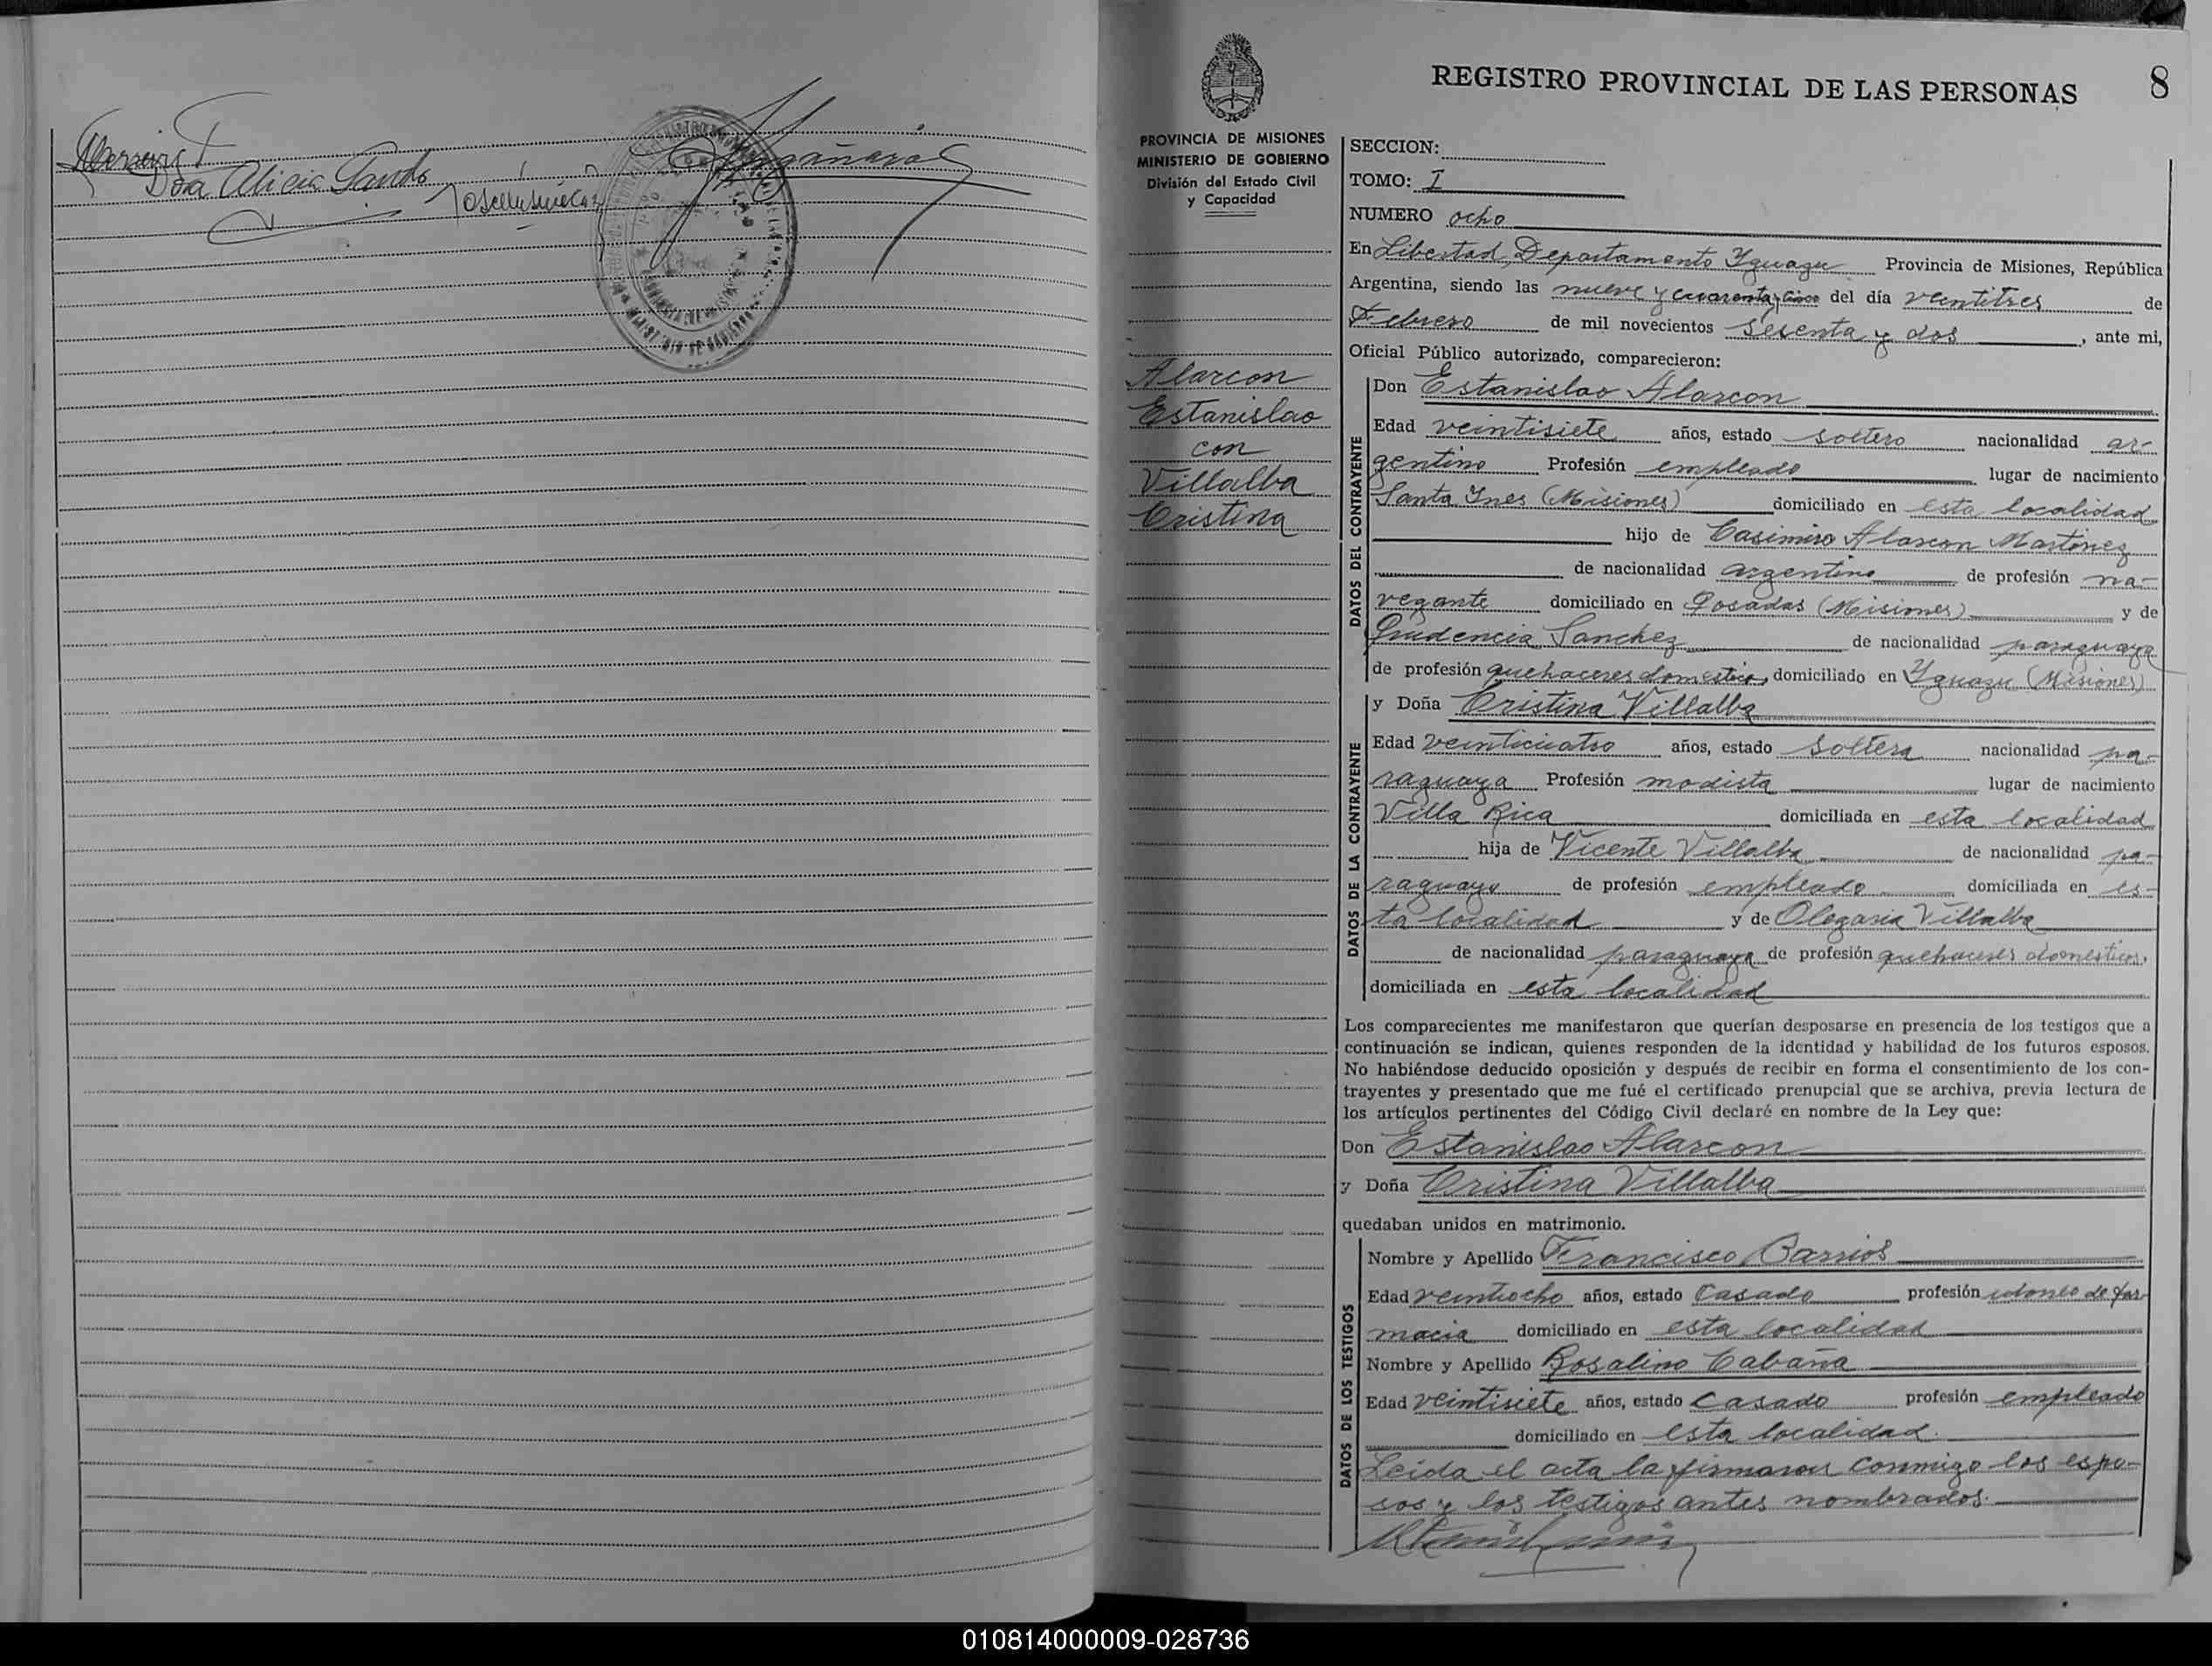 Dora Alicia
REGISTRO PROVINCIAL DE LAS PERSONAS
8
PROVINCIA DE MISIONES
MINISTERIO DE GOBIERNO
División del Estado Civil
y Capacidad
Alarcon
Estanislao
con
Villalba
Cristina
SECCION:
TOMO: I
NUMERO ocho
En Libertad, Departamento Yguazu Provincia de Misiones, República
Argentina, siendo las nueve y cuarenta y cinco del día veintitres de
Febrero de mil novecientos sesenta y dos, ante mi,
Oficial Público autorizado, comparecieron:
DATOS DEL CONTRAYENTE
Don Estanislao Alarcon
Edad veintisiete años, estado soltero nacionalidad ar-
gentino Profesión empleado lugar de nacimiento
Santa Ynes (Misiones) domiciliado en esta localidad
hijo de Casimiro Alarcon Martinez
de nacionalidad argentino de profesión na-
vegante domiciliado en Posadas (Misiones) y de
Prudencia Sanchez de nacionalidad paraguaya
de profesión quehaceres domesticos, domiciliado en Yguazu (Misiones)
DATOS DE LA CONTRAYENTE
y Doña Cristina Villalba
Edad veinticuatro años, estado soltera nacionalidad pa-
raguaya Profesión modista lugar de nacimiento
Villa Rica domiciliada en esta localidad
hija de Vicente Villalba de nacionalidad pa-
raguayo de profesión empleado domiciliada en es-
ta localidad y de Olegaria Villalba
de nacionalidad paraguaya de profesión quehaceres domesticos,
domiciliada en esta localidad
Los comparecientes me manifestaron que querían desposarse en presencia de los testigos que a
continuación se indican, quienes responden de la identidad y habilidad de los futuros esposos.
No habiéndose deducido oposición y después de recibir en forma el consentimiento de los con-
trayentes y presentado que me fué el certificado prenupcial que se archiva, previa lectura de
los artículos pertinentes del Código Civil declaré en nombre de la Ley que:
Don Estanislao Alarcon
y Doña Cristina Villalba
quedaban unidos en matrimonio.
DATOS DE LOS TESTIGOS
Nombre y Apellido Francisco Barrios
Edad veintiocho años, estado casado profesión idoneo de far-
macia domiciliado en esta localidad
Nombre y Apellido Rosalino Cabaña
Edad veintisiete años, estado casado profesión empleado
domiciliado en esta localidad.
Leida el acta la firmaron conmigo los espo-
sos y los testigos antes nombrados.
010814000009-028736